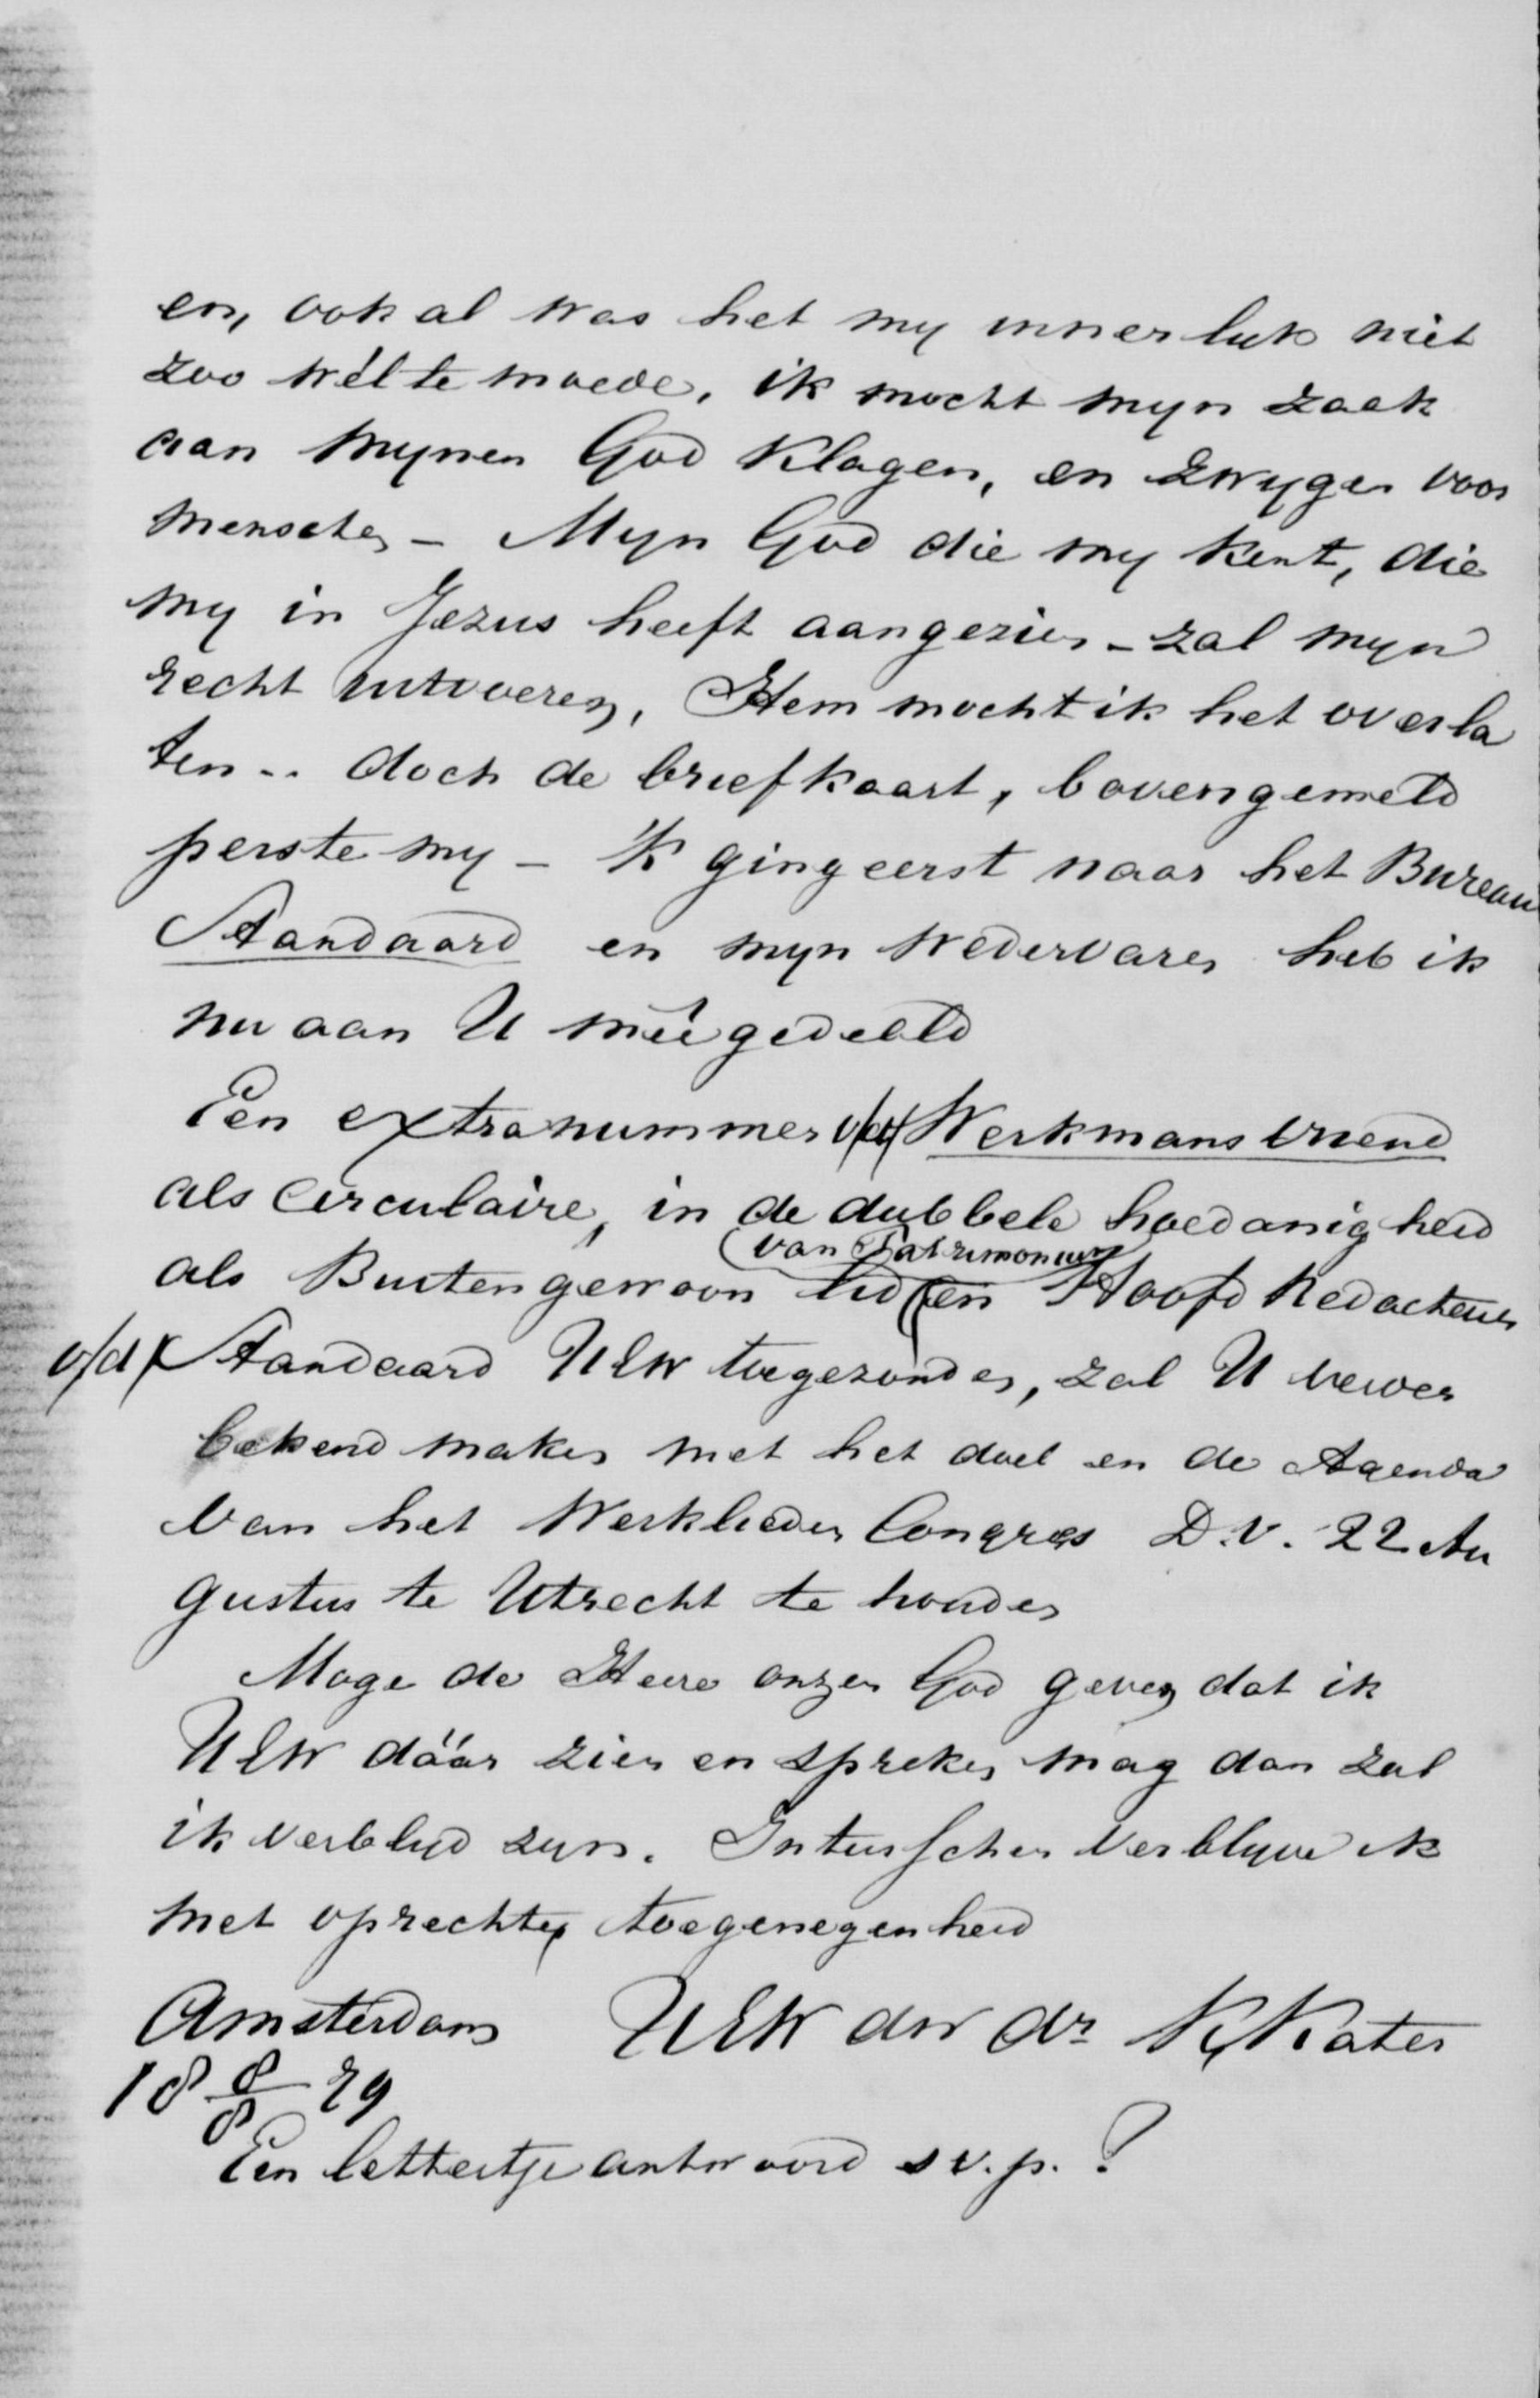 en, ook al was het my innerlyk niet
zoo wél te moede, ik mocht myn zaak
aan mynen God klagen, en zwygen voor
menschen – Myn God die my kent, die
my in Jezus heeft aangezien – zal myn
recht uitvoeren, Hem mocht ik het overla
ten .. doch de briefkaart, bovengemeld
perste my – 'k ging eerst naar het Bureau
Standaard en myn wedervaren heb ik
nu aan U meêgedeeld
Een extranummer v/d/ Werkmansvriend
als circulaire, in de dubbele hoedanigheid
(van Patrimonium
als Buitengewoon lid (en Hoofd Redacteur
v/d/ Standaard UEW toegezonden, zal U
bekend maken met het doel en de Agenda
van het Werklieden Congres D.V. 22 Au
gustus te Utrecht te houden
Moge de Heere onzen God geven dat ik
UEW dáár zien en spreken mag dan zal
ik verblyd zyn. Intusschen verblyve ik
met oprechte toegenegenheid
Amsterdam UEW dw dr K Kater
18 8/8 79
Een lettertje antwoord s.v.p.?